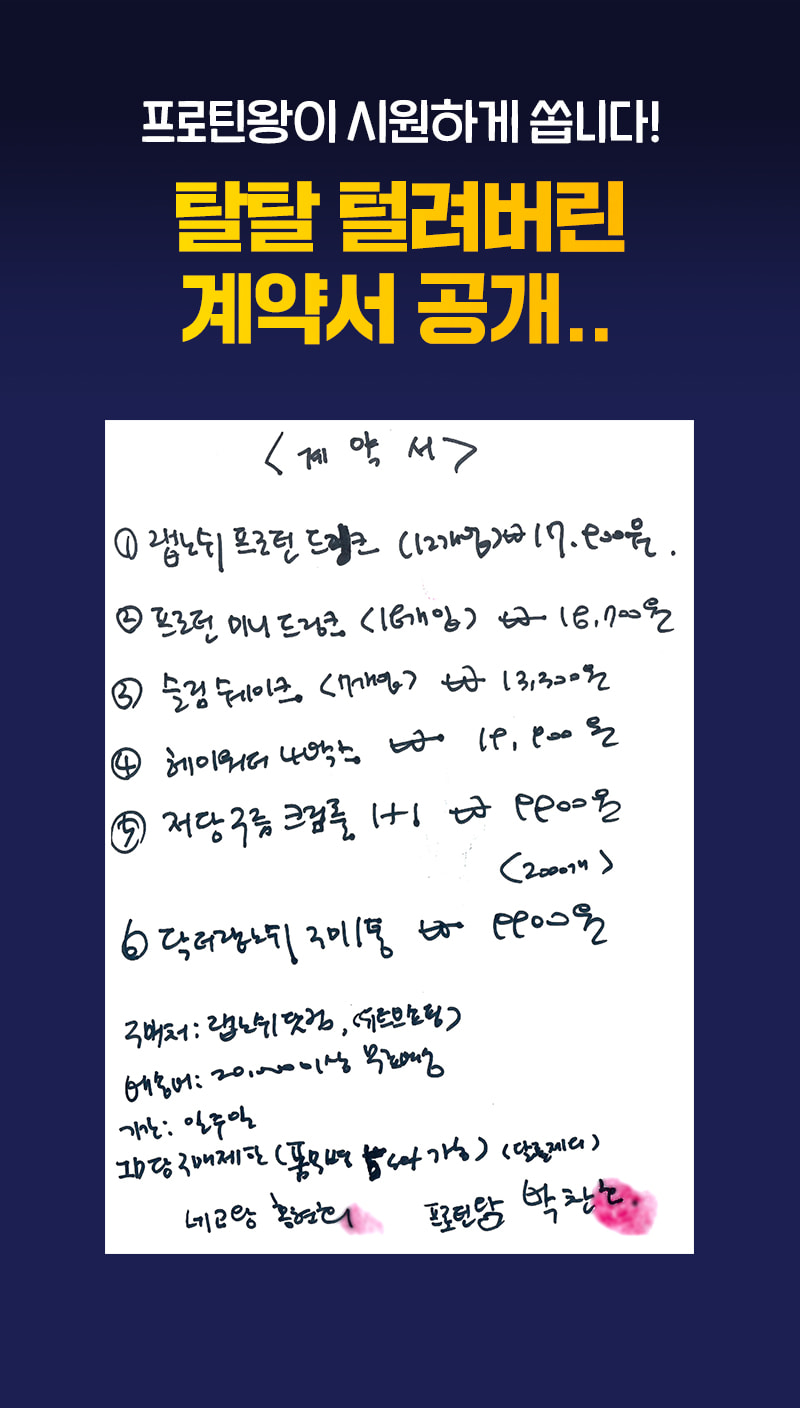 프로틴왕이 시원하게 쏩니다!
탈탈 털려버린
계약서 공개..
<계 약 서>
① 랩노쉬 프로틴 드링크 (12개입) ₩ 17.900원.
② 프로틴 미니드링크 (18개입) ₩ 18,700원
③ 슬림쉐이크 (7개입) ₩ 13,300원
④ 헤이워터 4박스 ₩ 19,900원
⑤ 저당 구름 크림롤 1+1 ₩ 9900원
(2000개)
6 닥터랩노쉬 구미 1통 ₩ 9900원
구매처: 랩노쉬닷컴, (유튜브쇼핑)
배송비: 20,000 이상 무료배송
기간: 일주일
1D당 구매제한 (품목별 가능) (달롤제외)
네고왕 홍현희 프로틴왕 박찬호.